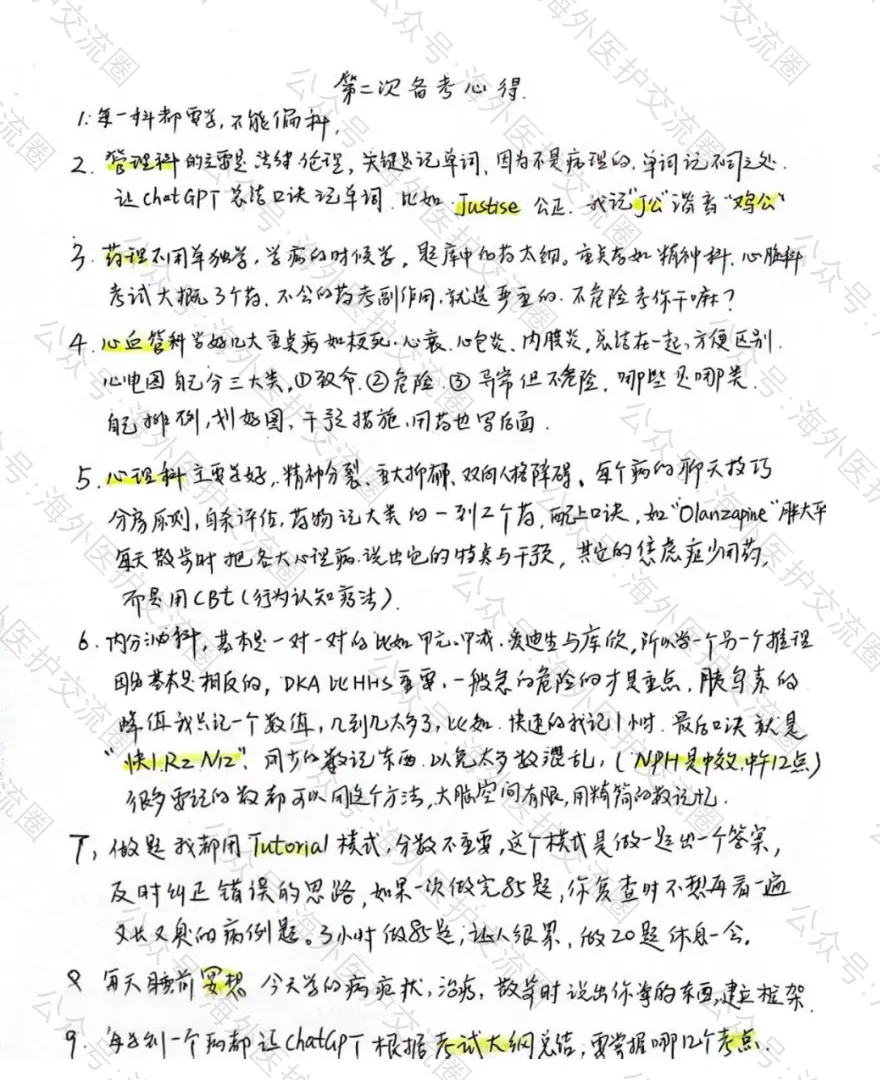 第二次备考心得.
1. 每一科都要学,不能偏科,
2. 管理科的主要是法律伦理,关键是记单词,因为不是病理的,单词记不同之处.
让chatGPT总结口诀记单词.比如 Justise 公正.我记"J公"谐音"鸡公"
3. 药理不用单独学,学病的时候学,题库中的药太细。重点存如精神科.心脏科
考试大概3个药.不会的药考副作用,就选严重的.不危险考你干嘛?
4. 心血管科学好几大重点病如梗死.心衰.心包炎、内膜炎,总结在一起,方便区别.
心电图自己分三大类,①致命.②危险.③异常但不危险,哪些见哪类.
自己排列,划好图,干预措施,用药也写后面.
5. 心理科主要学好,精神分裂、重大抑郁、双向人格障碍。每个病的聊天技巧
分房原则,自杀评估,药物记大类的一到2个药,配上口诀,如"Olanzapine"胖大平
每天散步时把各大心理病.说出它的特点与干预,其它的焦虑症少用药,
而是用CBt(行为认知疗法).
6. 内分泌科,基本是一对一对的比如甲亢.甲减.爱迪生与库欣,所以学一个另一个推理
因为基本是相反的,DKA比HHS重要,一般急的危险的才是重点,胰岛素的
峰值我只记一个数值,几到几太多了,比如.快速的我记1小时.最后口诀就是
"快1.R2 N12".同步的数记东西.以免太多数混乱,(NPH是中效,中午12点)
很多要记的数都可以用这个方法,大脑空间有限,用精简的数记忆.
7, 做题我都用Tutorial模式,分数不重要,这个模式是做一题出一个答案,
及时纠正错误的思路,如果一次做完85题,你复查时不想再看一遍
又长又臭的病例题。3小时做85题,让人很累,做20题休息一会.
8 每天睡前冥想 今天学的病症状,治疗,散步时说出你学的东西,建立框架
9. 每学到一个病都让chatGPT根据考试大纲总结,要掌握哪几个考点.
公众号:海外医护交流圈